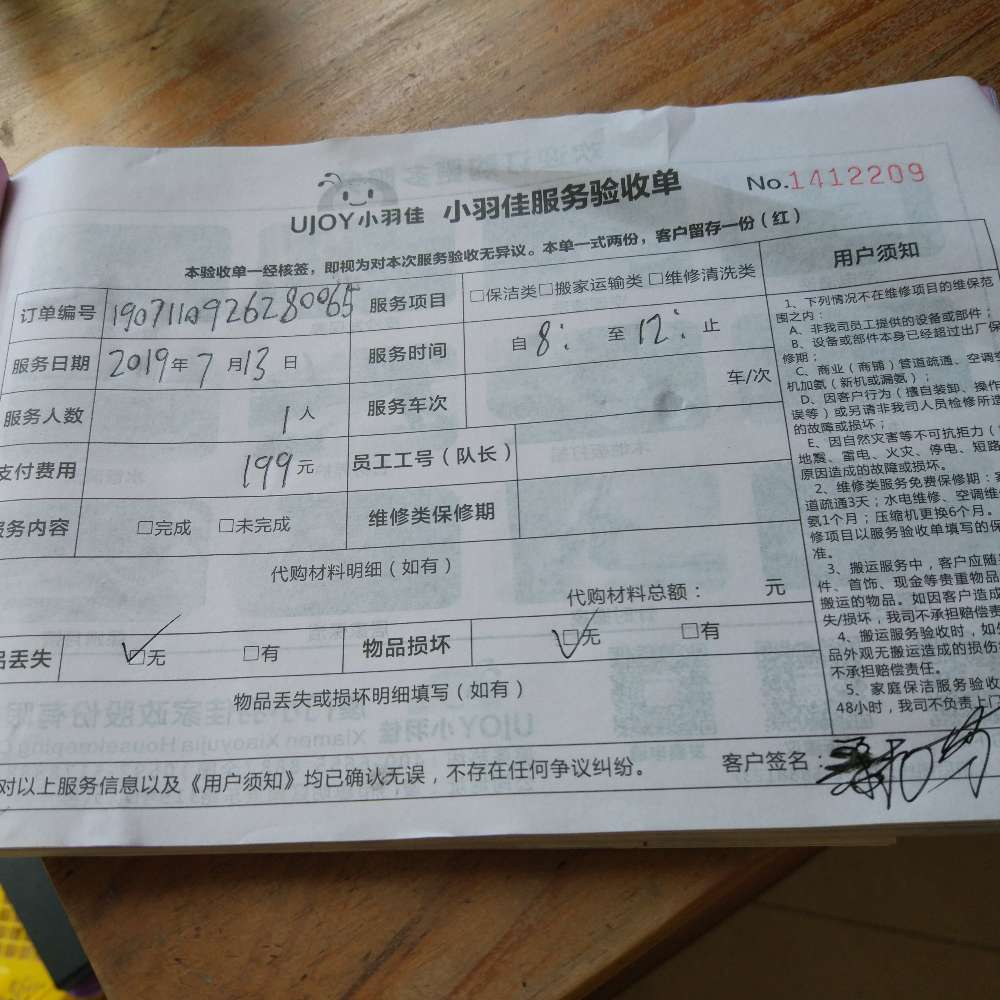 UJOY小羽佳 小羽佳服务验收单 No.1412209
本验收单一经核签，即视为对本次服务验收无异议。本单一式两份，客户留存一份（红）
订单编号 1907110926280065 服务项目 □保洁类□搬家运输类 □维修清洗类
服务日期 2019年7月13日 服务时间 自8: 至12: 止
服务人数 1人 服务车次 车/次
支付费用 199元 员工工号（队长）
服务内容 □完成 □未完成 维修类保修期
代购材料明细（如有）
代购材料总额： 元
品丢失 □无 □有 物品损坏 □无 □有
物品丢失或损坏明细填写（如有）
对以上服务信息以及《用户须知》均已确认无误，不存在任何争议纠纷。 客户签名：
用户须知
1、下列情况不在维修项目的维保范
围之内：
A、非我司员工提供的设备或部件；
B、设备或部件本身已经超过出厂保
修期；
C、商业（商铺）管道疏通、空调空
机加氨（新机或漏氨）；
D、因客户行为（擅自装卸、操作
误等）或另请非我司人员检修所造
的故障或损坏；
E、因自然灾害等不可抗拒力（
地震、雷电、火灾、停电、短路
原因造成的故障或损坏。
2、维修类服务免费保修期：家
道疏通3天；水电维修、空调维
氨1个月；压缩机更换6个月。
修项目以服务验收单填写的保
准。
3、搬运服务中，客户应随
件、首饰、现金等贵重物品
搬运的物品。如因客户造成
失/损坏，我司不承担赔偿责
4、搬运服务验收时，如
品外观无搬运造成的损伤
不承担赔偿责任。
5、家庭保洁服务验收
48小时，我司不负责上门